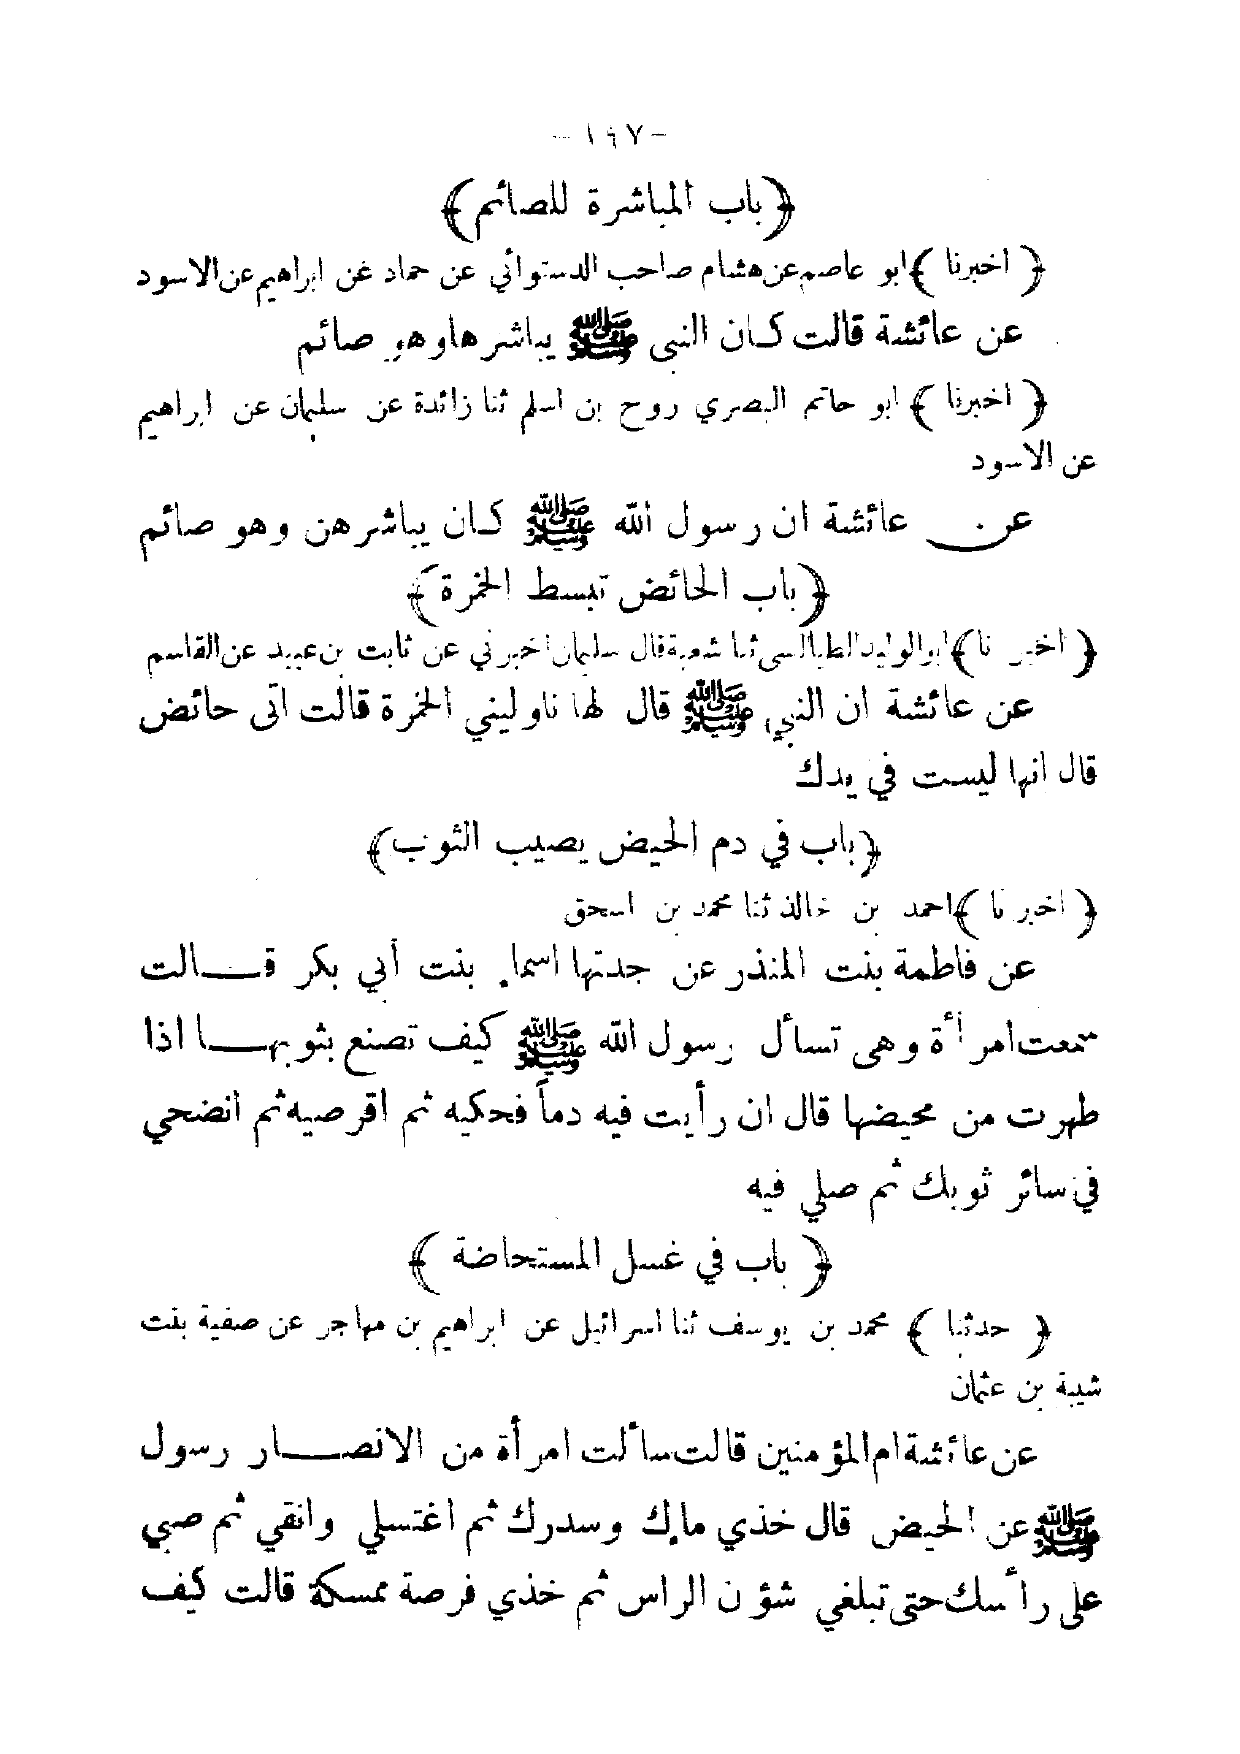 - ١٩٧ -
﴿باب المباشرة للصائم﴾
﴿ اخبرنا ﴾ابو عاصم عن هشام صاحب الدستوائي عن حماد عن ابراهيم عن الاسود
عن عائشة قالت كان النبي ﷺ يباشرها وهو صائم
﴿ اخبرنا ﴾ ابو حاتم البصري روح بن اسلم ثنا زائدة عن سليمان عن ابراهيم
عن الاسود
عن عائشة ان رسول الله ﷺ كان يباشرهن وهو صائم
﴿باب الحائض تبسط الخمرة﴾
﴿ اخبرنا ﴾ابوالوليد الطيالسي ثنا شعبة قال سليمان اخبرني عن ثابت بن عبيد عن القاسم
عن عائشة ان النبي ﷺ قال لها ناوليني الخمرة قالت اني حائض
قال انها ليست في يدك
﴿باب في دم الحيض يصيب الثوب﴾
﴿ اخبرنا ﴾احمد بن خالد ثنا محمد بن اسحق
عن فاطمة بنت المنذر عن جدتها اسماء بنت أبي بكر قالت
سمعت امرأة وهي تسأل رسول الله ﷺ كيف تصنع بثوبها اذا
طهرت من محيضها قال ان رأيت فيه دماً فحكيه ثم اقرصيه ثم انضحي
في سائر ثوبك ثم صلي فيه
﴿ باب في غسل المستحاضة ﴾
﴿ حدثنا ﴾ محمد بن يوسف ثنا اسرائيل عن ابراهيم بن مهاجر عن صفية بنت
شيبة بن عثمان
عن عائشة ام المؤمنين قالت سألت امرأة من الانصار رسول
ﷺ عن الحيض قال خذي ماءك وسدرك ثم اغتسلي وانقي ثم صبي
على رأسك حتى تبلغي شؤن الراس ثم خذي فرصة ممسكة قالت كيف